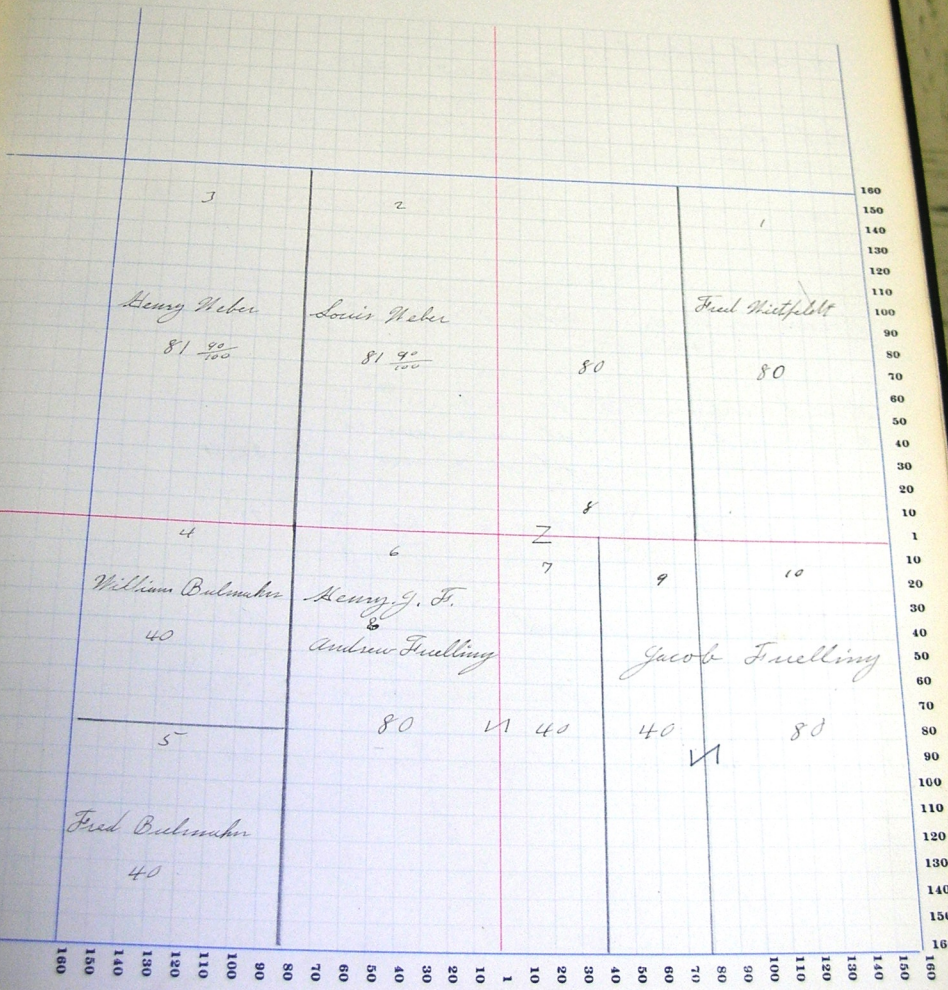 3
2
1
Henry Weber
Louis Weber
Fred Wietfeldt
81 90/100
81 90/100
80
80
8
4
6
7
9
10
William Bulmahn
Henry. J. F.
&
Andrew Fuelling
Jacob Fuelling
40
80
40
40
80
5
Fred Bulmahn
40
160
150
140
130
120
110
100
90
80
70
60
50
40
30
20
10
1
10
20
30
40
50
60
70
80
90
100
110
120
130
140
150
16
160 150 140 130 120 110 100 90 80 70 60 50 40 30 20 10 1 10 20 30 40 50 60 70 80 90 100 110 120 130 140 150 160